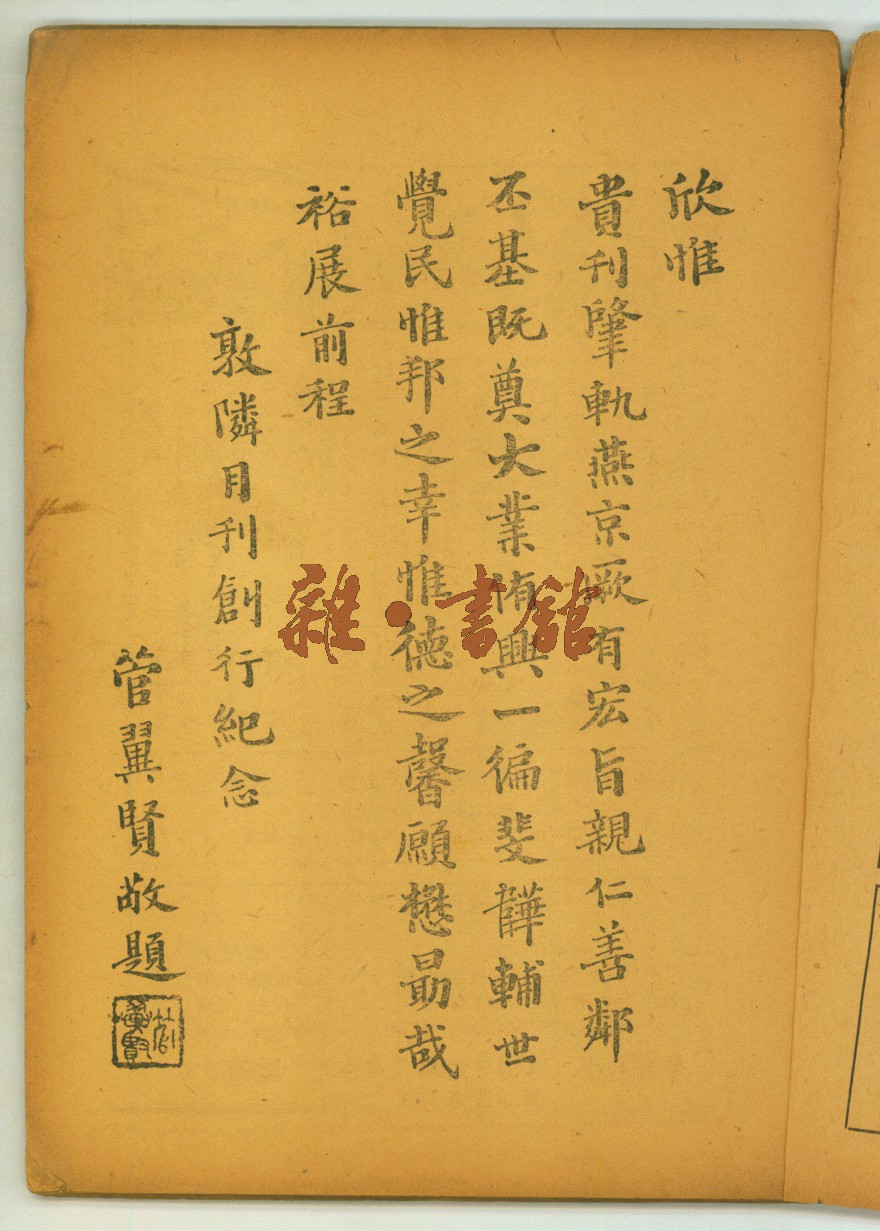 欣惟
貴刊肇軌燕京厥有宏旨親仁善鄰
丕基既奠大業侑興一徧斐韡輔世
覺民惟邦之幸惟德之馨願懋勗哉
裕展前程
敦隣月刊創行紀念
管翼賢敬題
管翼賢
雜·書館